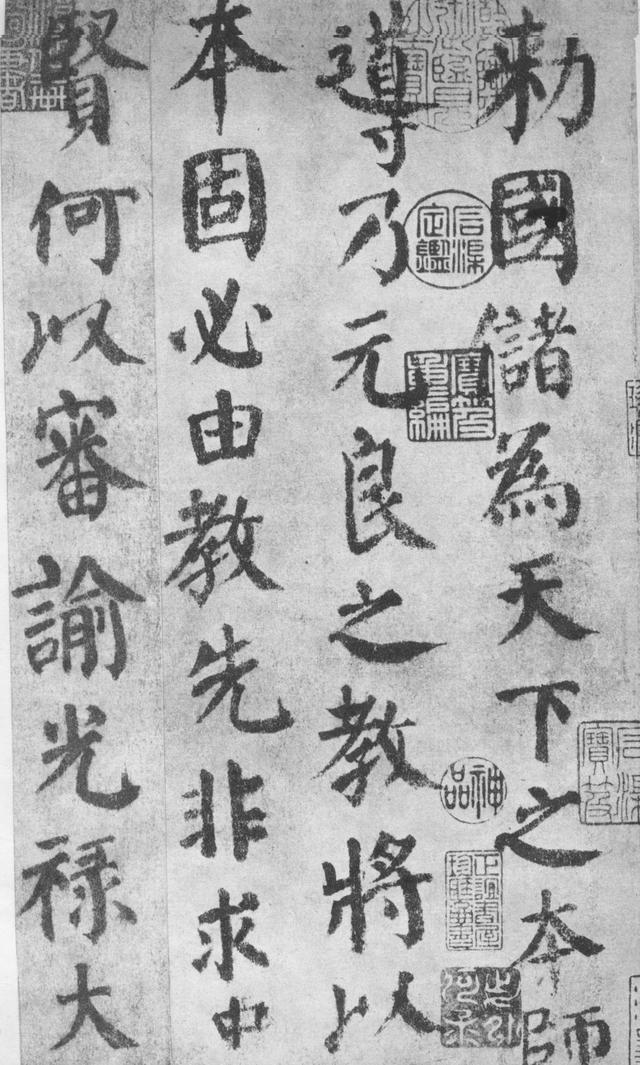 勅國儲為天下之本師
導乃元良之教將以
本固必由教先非求中
賢何以審諭光祿大
石渠定鑑
寶笈重編
石渠寶笈
神品